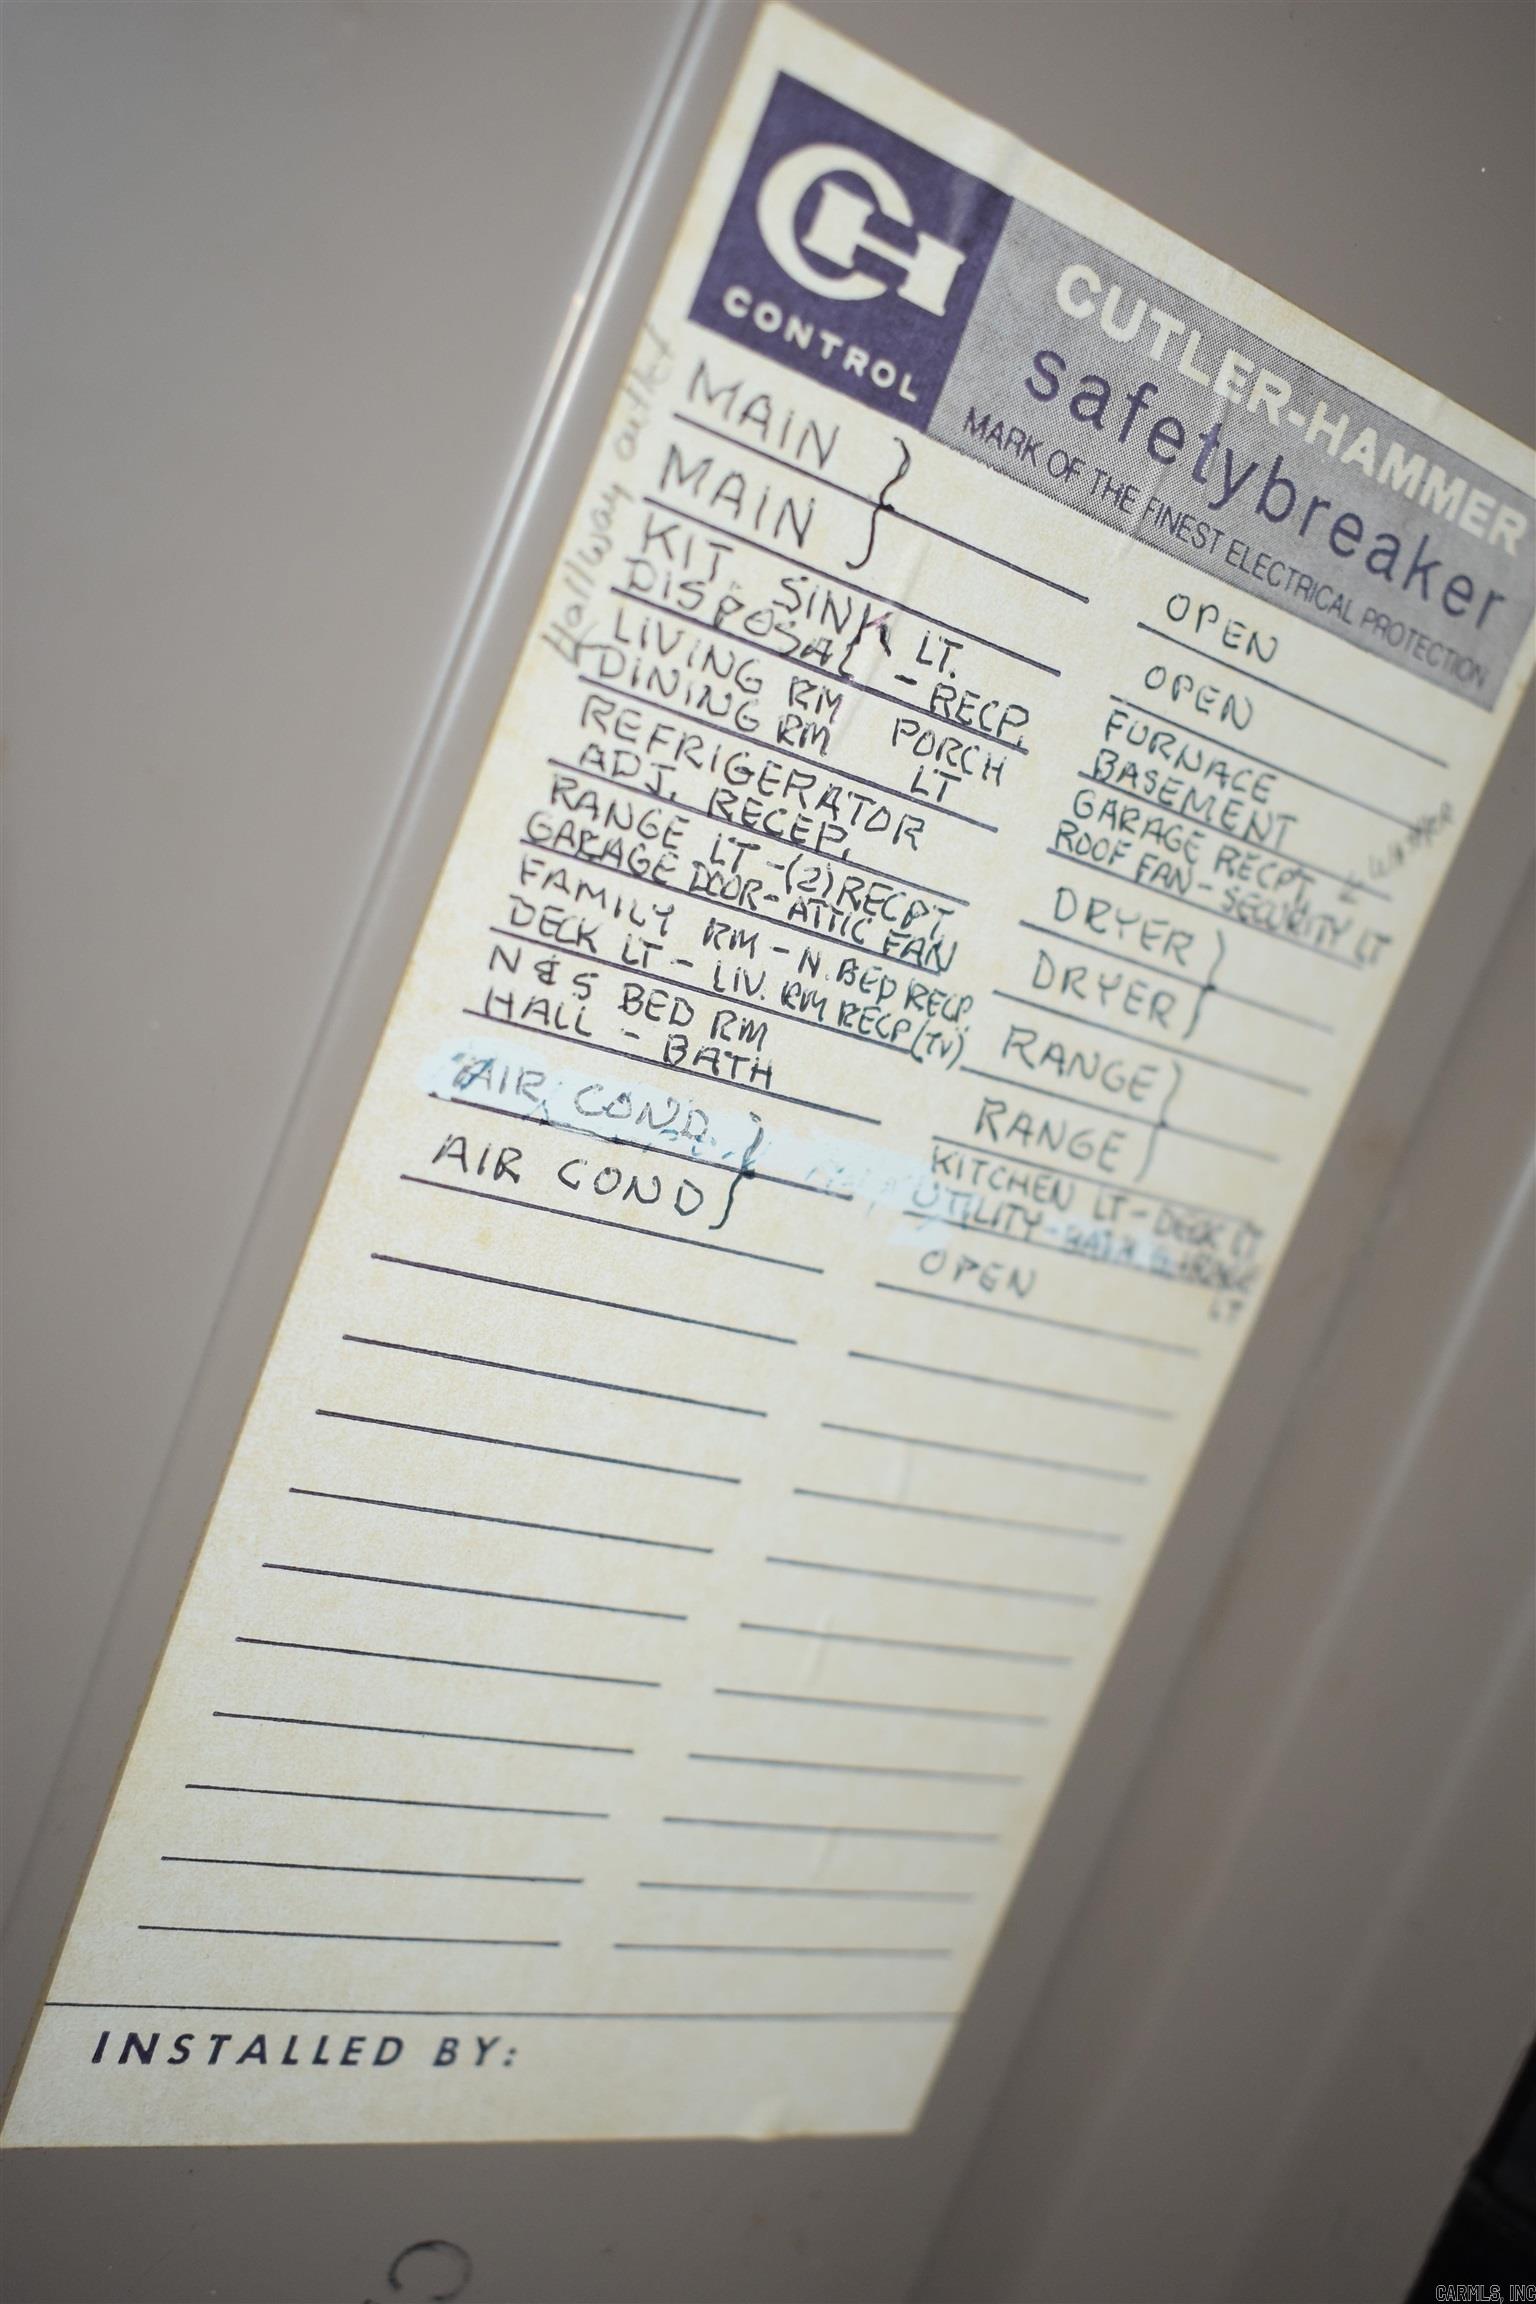 CH
CONTROL
CUTLER-HAMMER
safetybreaker
MARK OF THE FINEST ELECTRICAL PROTECTION
Hallway outlet
MAIN
MAIN
KIT. SINK LT.
DISPOSAL - RECP.
LIVING RM PORCH
DINING RM LT
REFRIGERATOR
ADJ. RECEP.
RANGE LT -(2) RECPT
GARAGE DOOR - ATTIC FAN
FAMILY RM - N. BED RECP.
DECK LT - LIV. RM RECP (TV)
N & S BED RM
HALL - BATH
AIR COND.
AIR COND
OPEN
OPEN
FURNACE
BASEMENT
GARAGE RECPT
ROOF FAN - SECURITY LT
DRYER
DRYER
RANGE
RANGE
KITCHEN LT - DECK LT
UTILITY - BATH
LT
OPEN
INSTALLED BY:
C
CARMLS, INC